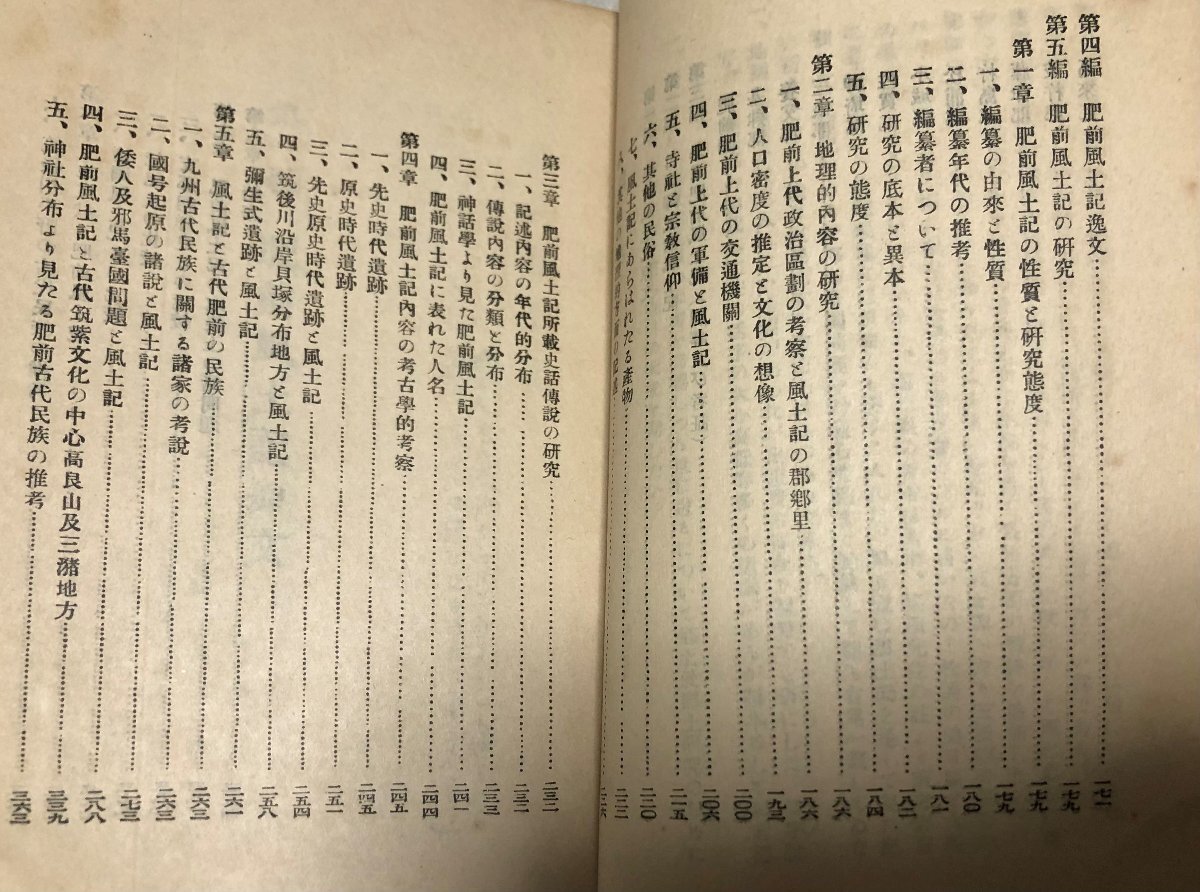 第四編 肥前風土記逸文……一七一
第五編 肥前風土記の研究……一七九
第一章 肥前風土記の性質と研究態度……一七九
一、編纂の由來と性質……一七九
二、編纂年代の推考……一八〇
三、編纂者について……一八一
四、研究の底本と異本……一八二
五、研究の態度……一八四
第二章 地理的內容の研究……一八六
一、肥前上代政治區劃の考察と風土記の郡鄕里……一八六
二、人口密度の推定と文化の想像……一九三
三、肥前上代の交通機關……二〇〇
四、肥前上代の軍備と風土記……二〇六
五、寺社と宗敎信仰……二一五
六、其他の民俗……二二〇
七、風土記にあらはれたる產物……二二二
八、其他の
第三章 肥前風土記所載史話傳說の研究……二三二
一、記述內容の年代的分布……二三二
二、傳說內容の分類と分布……二三三
三、神話學より見た肥前風土記……二四一
四、肥前風土記に表れた人名……二四四
第四章 肥前風土記內容の考古學的考察……二四五
一、先史時代遺跡……二四五
二、原史時代遺跡……二五一
三、先史原史時代遺跡と風土記……二五四
四、筑後川沿岸貝塚分布地方と風土記……二五八
五、彌生式遺跡と風土記……二六一
第五章 風土記と古代肥前の民族……二六三
一、九州古代民族に關する諸家の考說……二六三
二、國号起原の諸說と風土記……二七三
三、倭人及邪馬臺國問題と風土記……二八八
四、肥前風土記と古代筑紫文化の中心高良山及三瀦地方……三三九
五、神社分布より見たる肥前古代民族の推考……三六三